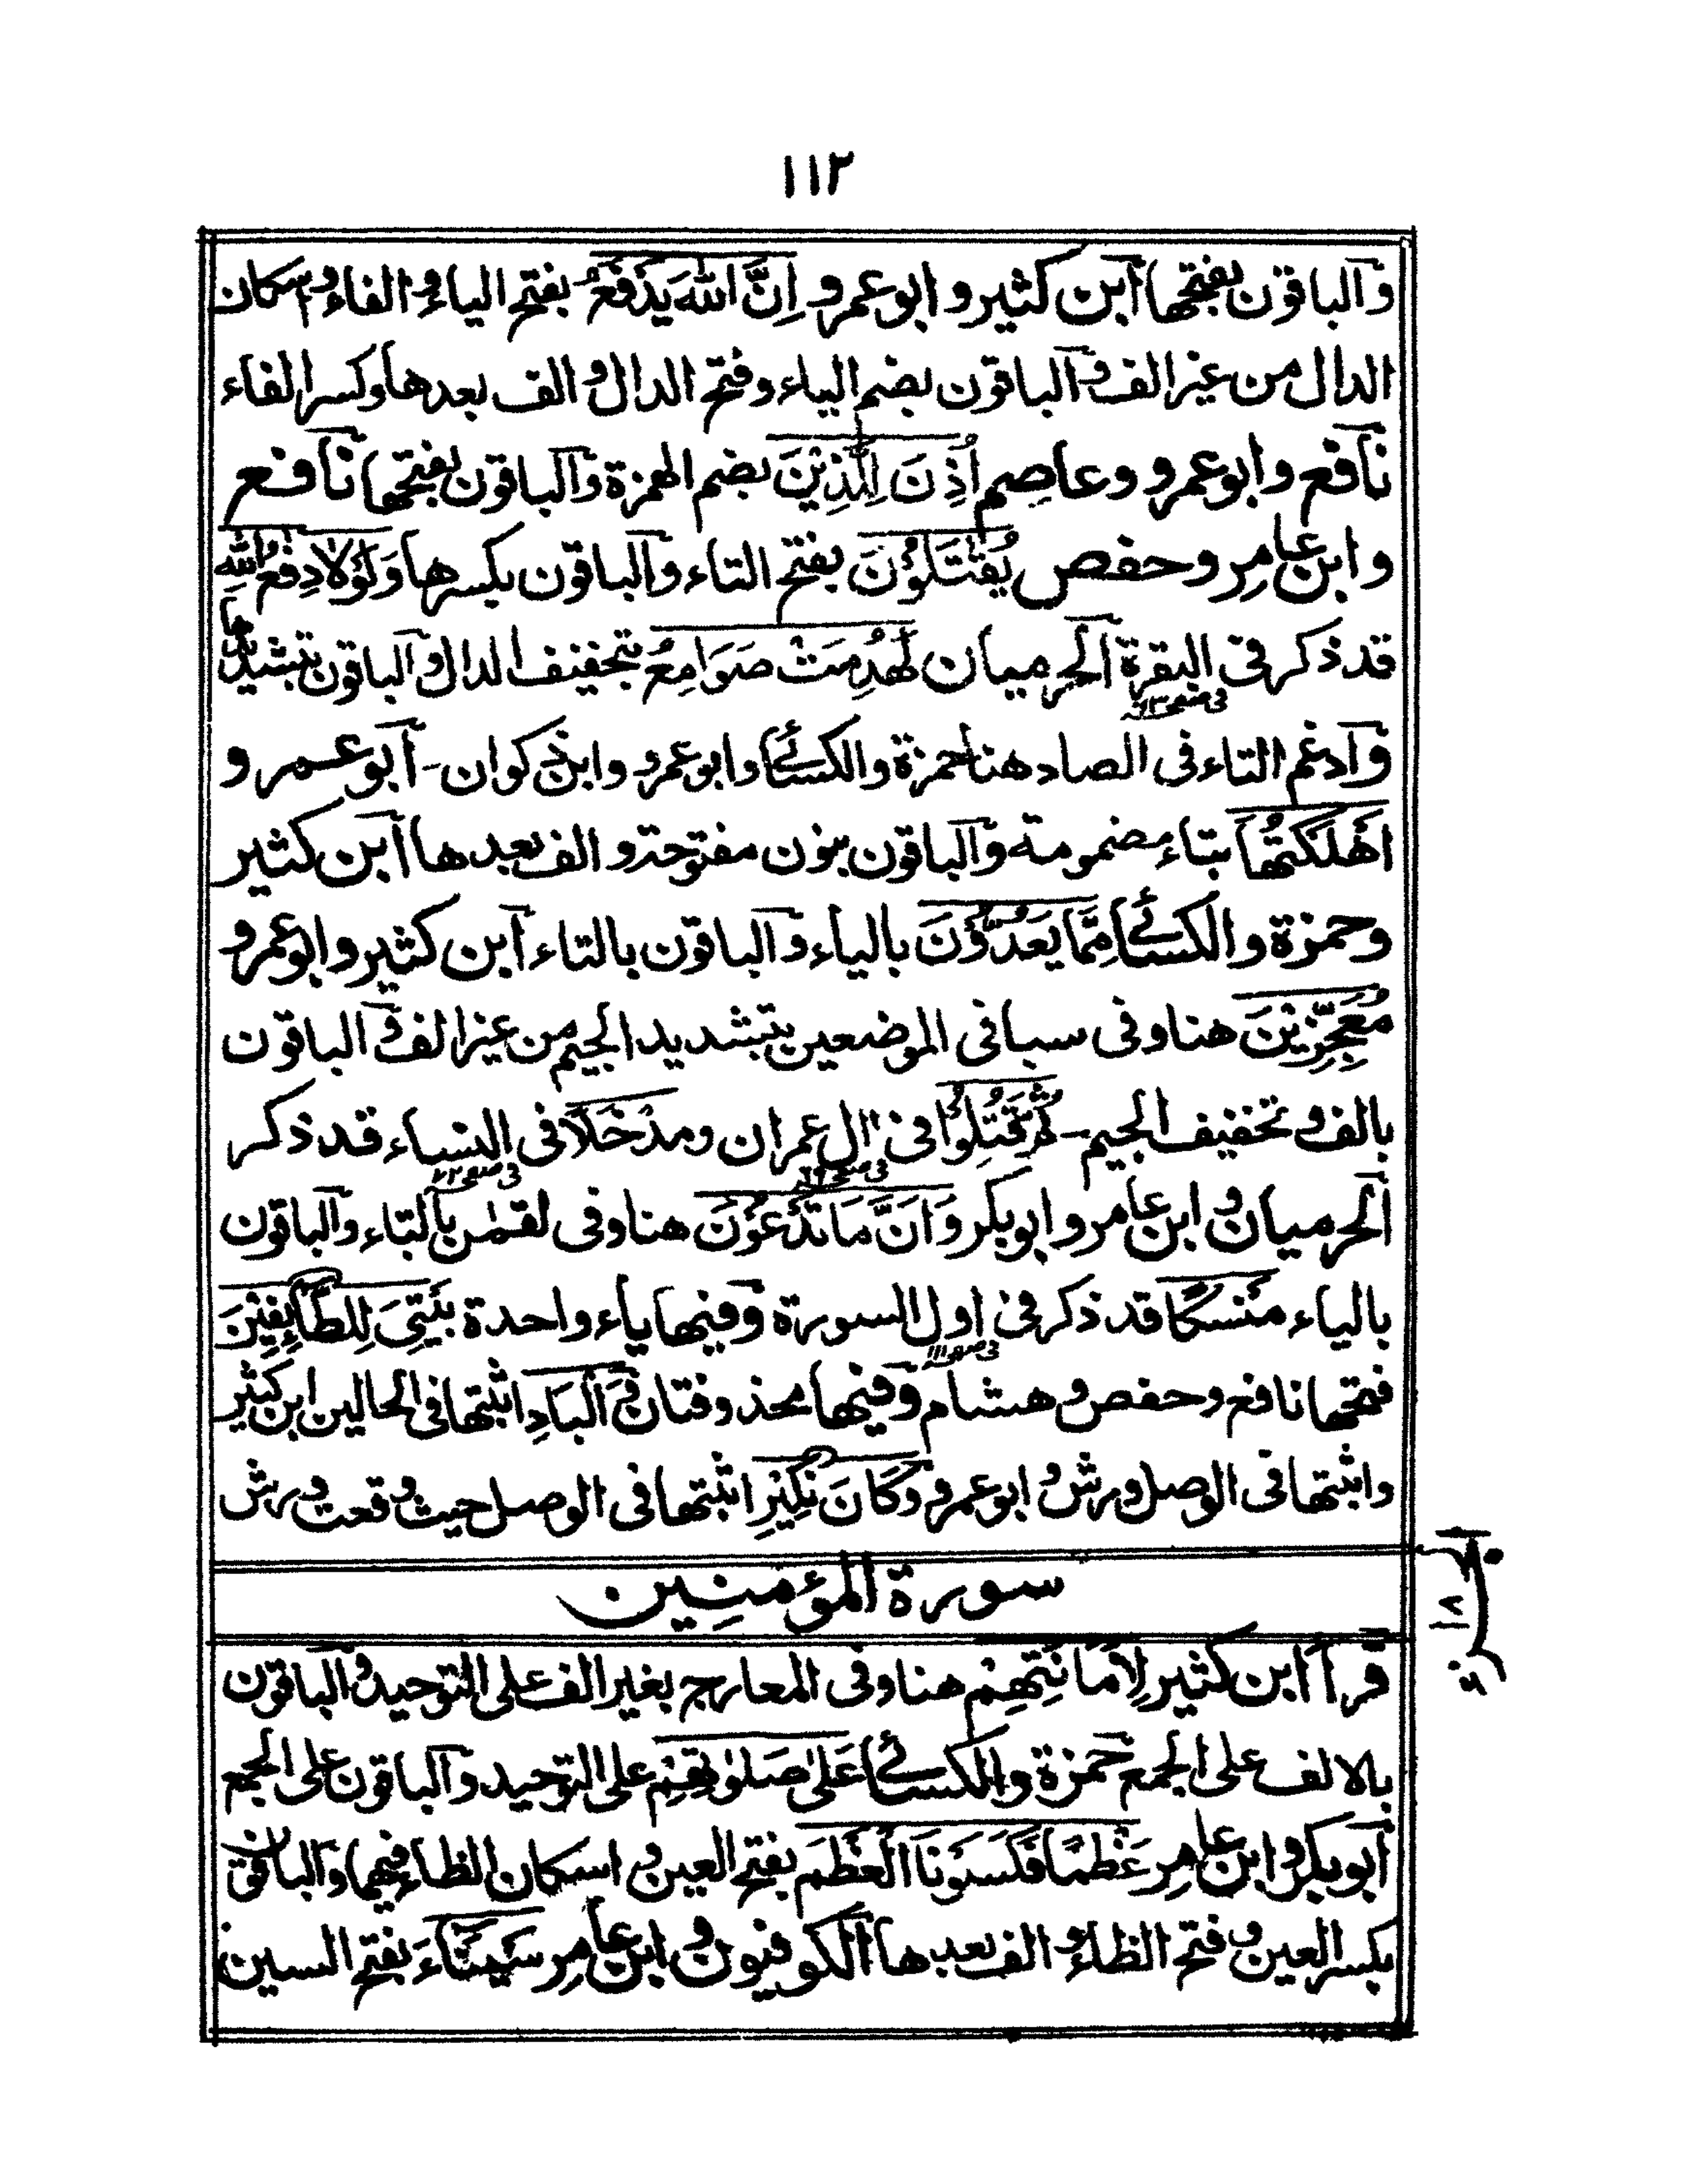 ١١٣
والباقون بفتحها ابن كثير و ابو عمرو اِنَّ اللّٰهَ يَدْفَعُ بفتح الياء و الفاء و اسكان
الدال من غير الف و الباقون بضم الياء و فتح الدال و الف بعدها و كسر الفاء
نافع و ابو عمرو و عاصم اُذِنَ لِلَّذِيْنَ بضم الهمزة و الباقون بفتحها نافع
و ابن عامر و حفص يُقٰتَلُوْنَ بفتح التاء و الباقون بكسرها وَلَوْلَا دِفٰعُ اللّٰهِ
قد ذكر فى البقرة الحرميان لَهُدِمَتْ صَوَامِعُ بتخفيف الدال و الباقون بتشديدها
و ادغم التاء فى الصاد هنا حمزة و الكسائے و ابو عمرو و ابن ذكوان - ابو عمرو
اَهْلَكْتُهَا بتاء مضمومة و الباقون بنون مفتوحة و الف بعدها ابن كثير
و حمزة و الكسائے مِمَّا يَعُدُّوْنَ بالياء و الباقون بالتاء ابن كثير و ابو عمرو
مُعَجِّزِيْنَ هنا و فى سبا فى الموضعين بتشديد الجيم من غير الف و الباقون
بالف و تخفيف الجيم - ثُمَّ قُتِلُوْا فى اٰل عمران و مَدْخَلًا فى النساء قد ذكر
الحرميان و ابن عامر و ابو بكر وَ اَنَّ مَا تَدْعُوْنَ هنا و فى لقمٰن بالتاء و الباقون
بالياء مَنْسَكًا قد ذكر فى اول السورة و فيها ياء واحدة بَيْتِىَ لِلطَّآئِفِيْنَ
فتحها نافع و حفص و هشام و فيها محذوفتان وَ الْبَادِ اثبتها فى الحالين ابن كثير
و اثبتها فى الوصل ورش و ابو عمرو وَ كَانَ نَكِيْرِ اثبتها فى الوصل حيث وقعت ورش
سورة المؤمنين
قرأ ابن كثير لِاَمَانَتِهِمْ هنا و فى المعارج بغير الف على التوحيد و الباقون
بالالف على الجمع حمزة و الكسائے عَلٰى صَلٰوتِهِمْ على التوحيد و الباقون على الجمع
ابو بكر و ابن عامر عَظْمًا فَكَسَوْنَا الْعَظْمَ بفتح العين و اسكان الظاء فيهما و الباقون
بكسر العين و فتح الظاء و الف بعدها الكوفيون و ابن عامر سَيْنَآءَ بفتح السين